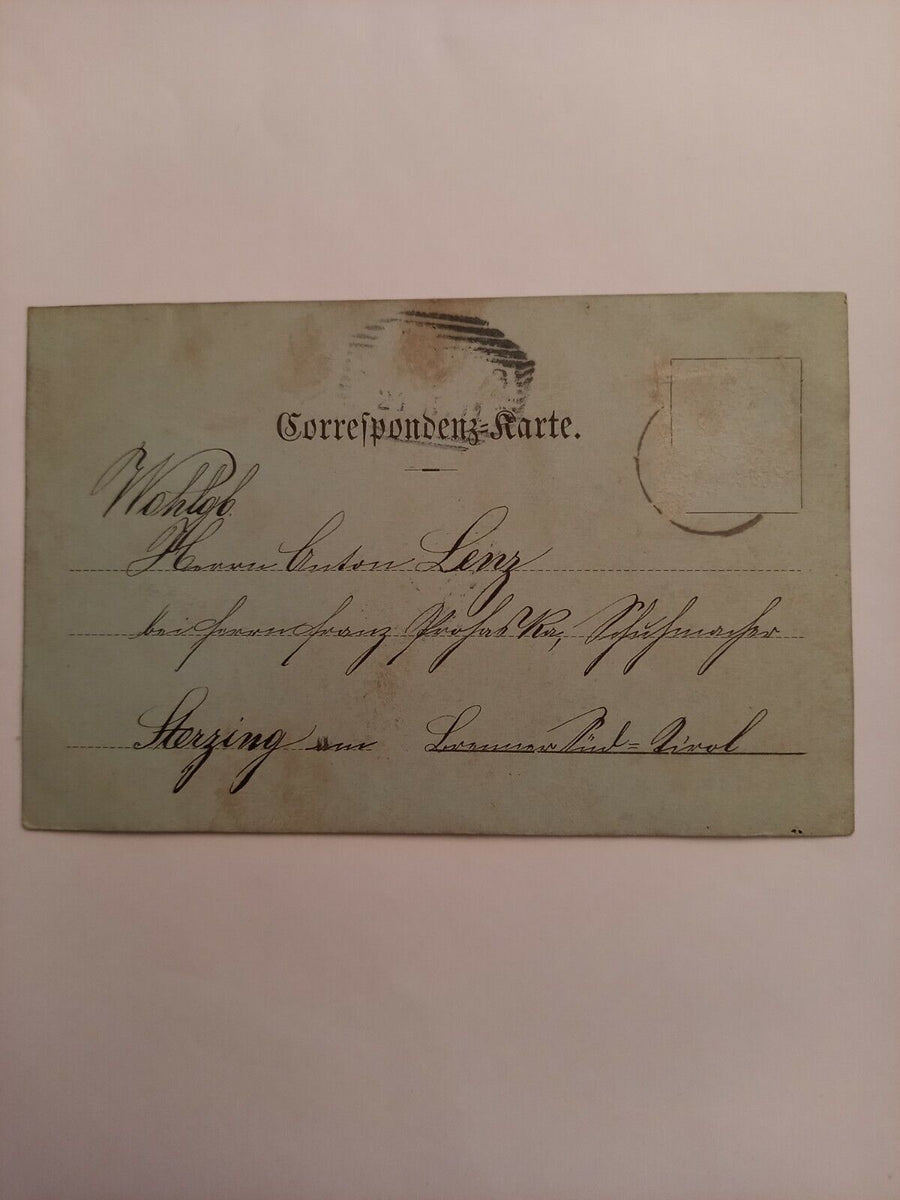 Correspondenz-Karte.
Wohlgb.
Herrn Anton Lenz
bei Herrn Franz Prohaska, Schuhmacher
Sterzing am Brenner Süd-Tirol